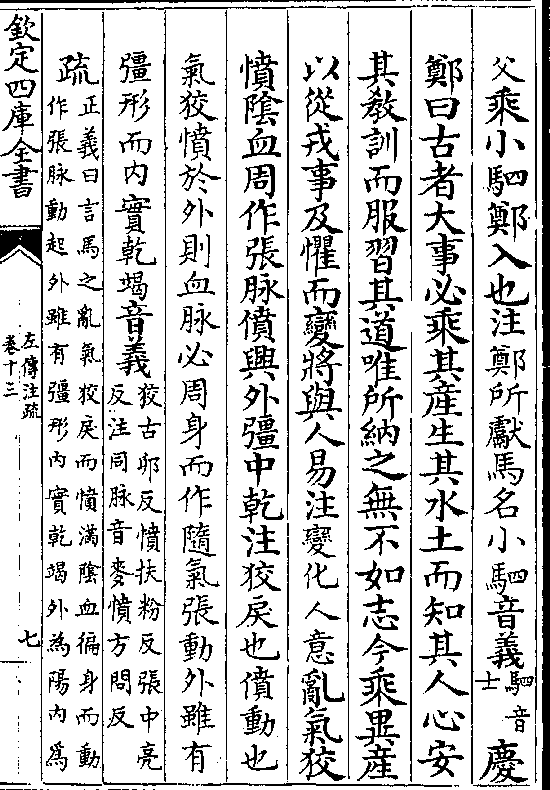 父乘小駟鄭入也注鄭所獻馬名小駟音義駟音士慶
鄭曰古者大事必乘其產生其水土而知其人心安
其敎訓而服習其道唯所納之無不如志今乘異產
以從戎事及懼而變將與人易注變化人意亂氣狡
憤陰血周作張脉僨興外彊中乾注狡戾也僨動也
氣狡憤於外則血脉必周身而作隨氣張動外雖有
彊形而内實乾竭音義狡古夘反憤扶粉反張中亮
反注同脉音麥僨方問反
疏正義曰言馬之亂氣狡戾而憤滿陰血徧身而動
作張脉動起外雖有彊形内實乾竭外為陽内為
欽定四庫全書
左傳注疏
卷十三
七